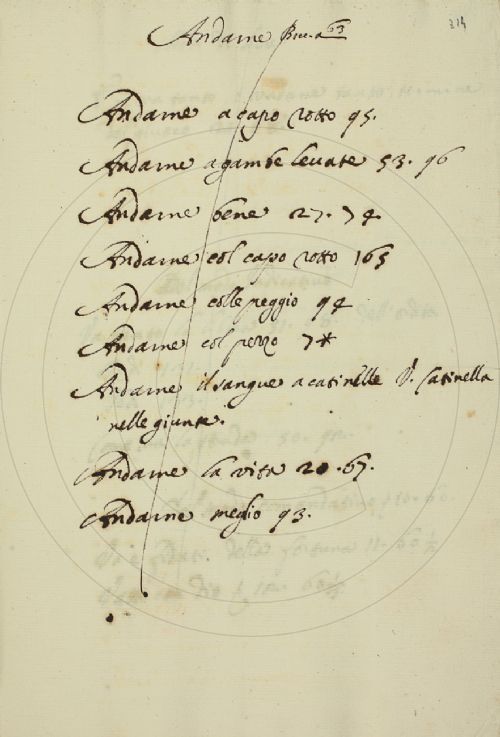 Andarne
314
Andarne a capo rotto 95.
Andarne a gambe levate 53. 96
Andarne bene 27. 74
Andarne col capo rotto 165
Andarne colle peggio 94
Andarne col pezzo 7*
Andarne il sangue a catinelle V. Catinella
nelle giunte.
Andarne la vita 20. 67.
Andarne meglio 93.